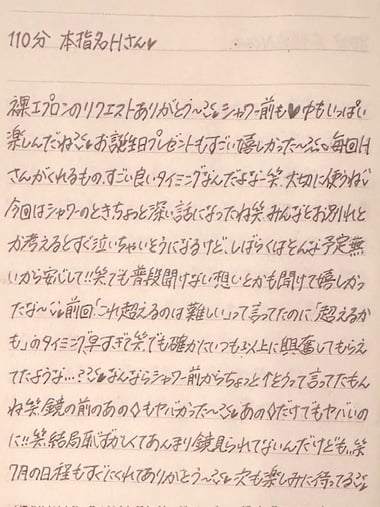 110分 本指名Hさん♥
裸エプロンのリクエストありがとう〜♡シャワー前も♥中もいっぱい
楽しんだね♡お誕生日プレゼントもすごい嬉しかった〜♡毎回H
さんがくれるもの、すごい良いタイミングなんだよな〜笑、大切に使うね♡
今回はシャワーのときちょっと深い話になったね笑、みんなとお別れと
か考えるとすぐ泣いちゃいそうになるけど、しばらくはそんな予定無
いから安心して!!笑でも普段聞けない想いとかも聞けて嬉しかっ
たな〜♡前回「これ超えるのは難しい」って言ってたのに「超えるか
も」のタイミング早すぎ笑、でも確かにいつも以上に興奮してもらえ
てたような…?♡なんならシャワー前からちょっと↑とうって言ってたもん
ね笑、鏡の前のあの◇もヤバかった〜♡あの◇だけでもヤバいの
に!!笑、結局恥ずかしくてあんまり鏡見られてないんだけども、笑
7月の日程もすぐにくれてありがとう〜♡次も楽しみに待ってる♡